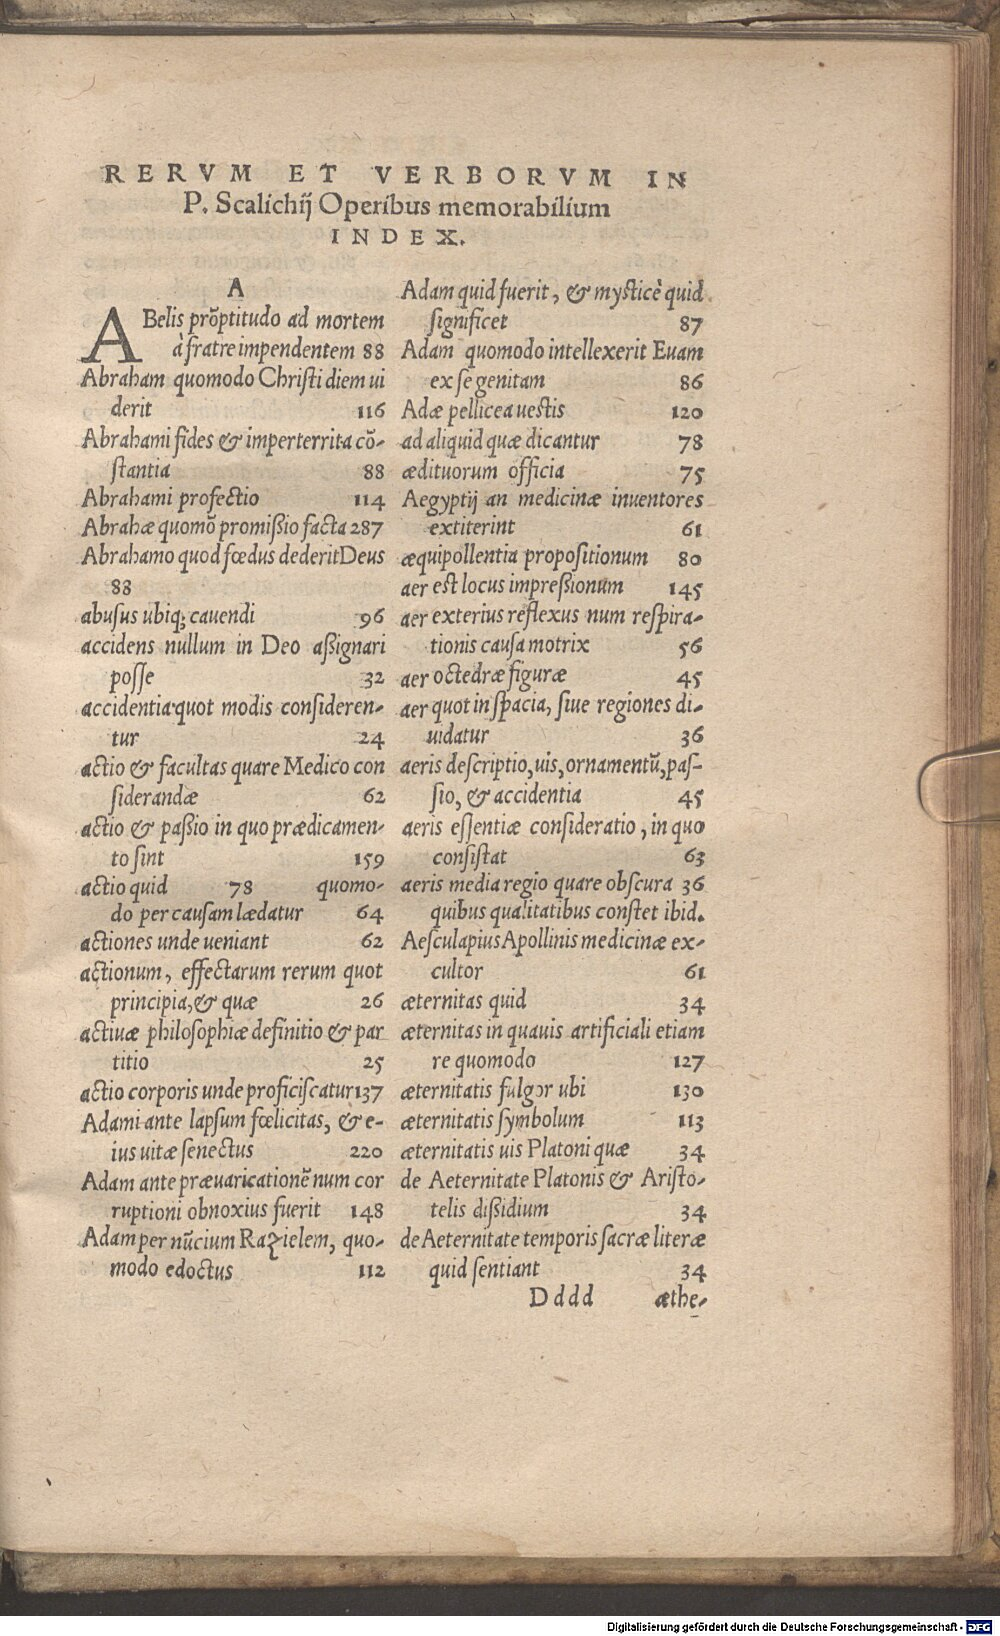 RERVM ET VERBORVM IN
P. Scalichij Operibus memorabilium
INDEX.
A
ABelis prõptitudo ad mortem
à fratre impendentem 88
Abraham quomodo Christi diem ui
derit 116
Abrahami fides & imperterrita cõ-
stantia 88
Abrahami profectio 114
Abrahæ quomõ promißio facta 287
Abrahamo quod fœdus dederit Deus
88
abusus ubiq; cauendi 96
accidens nullum in Deo aßignari
posse 32
accidentia quot modis consideren-
tur 24
actio & facultas quare Medico con
siderandæ 62
actio & paßio in quo prædicamen-
to sint 159
actio quid 78 quomo-
do per causam lædatur 64
actiones unde ueniant 62
actionum, effectarum rerum quot
principia, & quæ 26
actiuæ philosophiæ definitio & par
titio 25
actio corporis unde proficiscatur 137
Adami ante lapsum fœlicitas, & e-
ius uitæ senectus 220
Adam ante præuaricationẽ num cor
ruptioni obnoxius fuerit 148
Adam per nũcium Razielem, quo-
modo edoctus 112
Adam quid fuerit, & mysticè quid
significet 87
Adam quomodo intellexerit Euam
ex se genitam 86
Adæ pellicea uestis 120
ad aliquid quæ dicantur 78
ædituorum officia 75
Aegyptij an medicinæ inuentores
extiterint 61
æquipollentia propositionum 80
aer est locus impreßionum 145
aer exterius reflexus num respira-
tionis causa motrix 56
aer octedræ figuræ 45
aer quot in spacia, siue regiones di-
uidatur 36
aeris descriptio, uis, ornamentũ, pas-
sio, & accidentia 45
aeris essentiæ consideratio, in quo
consistat 63
aeris media regio quare obscura 36
quibus qualitatibus constet ibid.
Aesculapius Apollinis medicinæ ex-
cultor 61
æternitas quid 34
æternitas in quauis artificiali etiam
re quomodo 127
æternitatis fulgor ubi 130
æternitatis symbolum 113
æternitatis uis Platoni quæ 34
de Aeternitate Platonis & Aristo-
telis dißidium 34
de Aeternitate temporis sacræ literæ
quid sentiant 34
Dddd æthe-
Digitalisierung gefördert durch die Deutsche Forschungsgemeinschaft - DFG